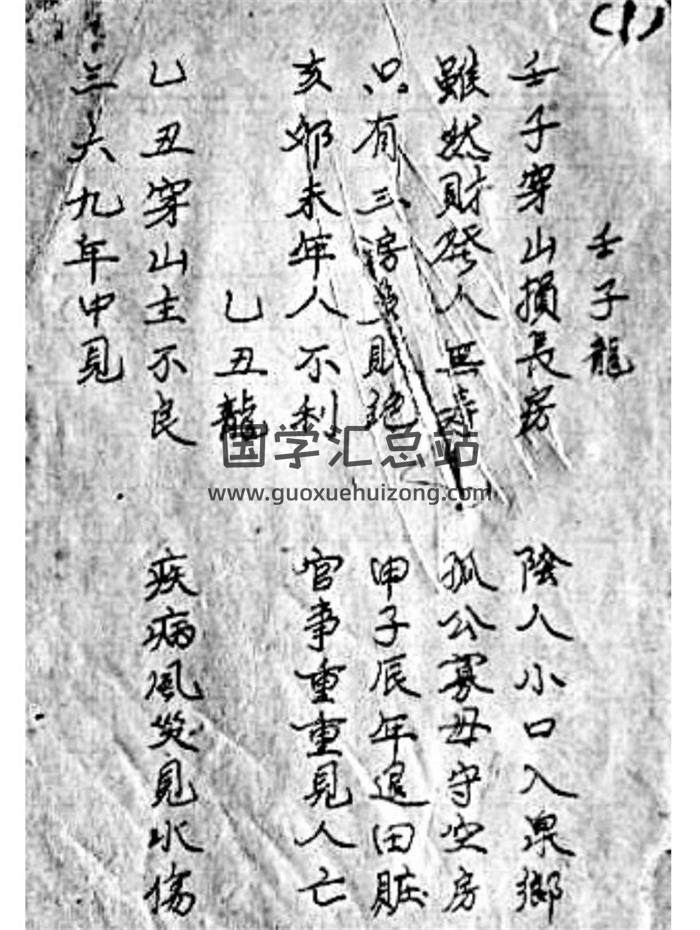 (1)
壬子龍
壬子穿山損長房 陰人小口入泉鄉
雖然財發人無壽 孤公寡母守空房
只有三房財 申子辰年退田脏
亥卯未年人不利 官事重重見人亡
乙丑龍
乙丑穿山主不良 疾病風災見水傷
三六九年中見
国学汇总站
www.guoxuehuizong.com